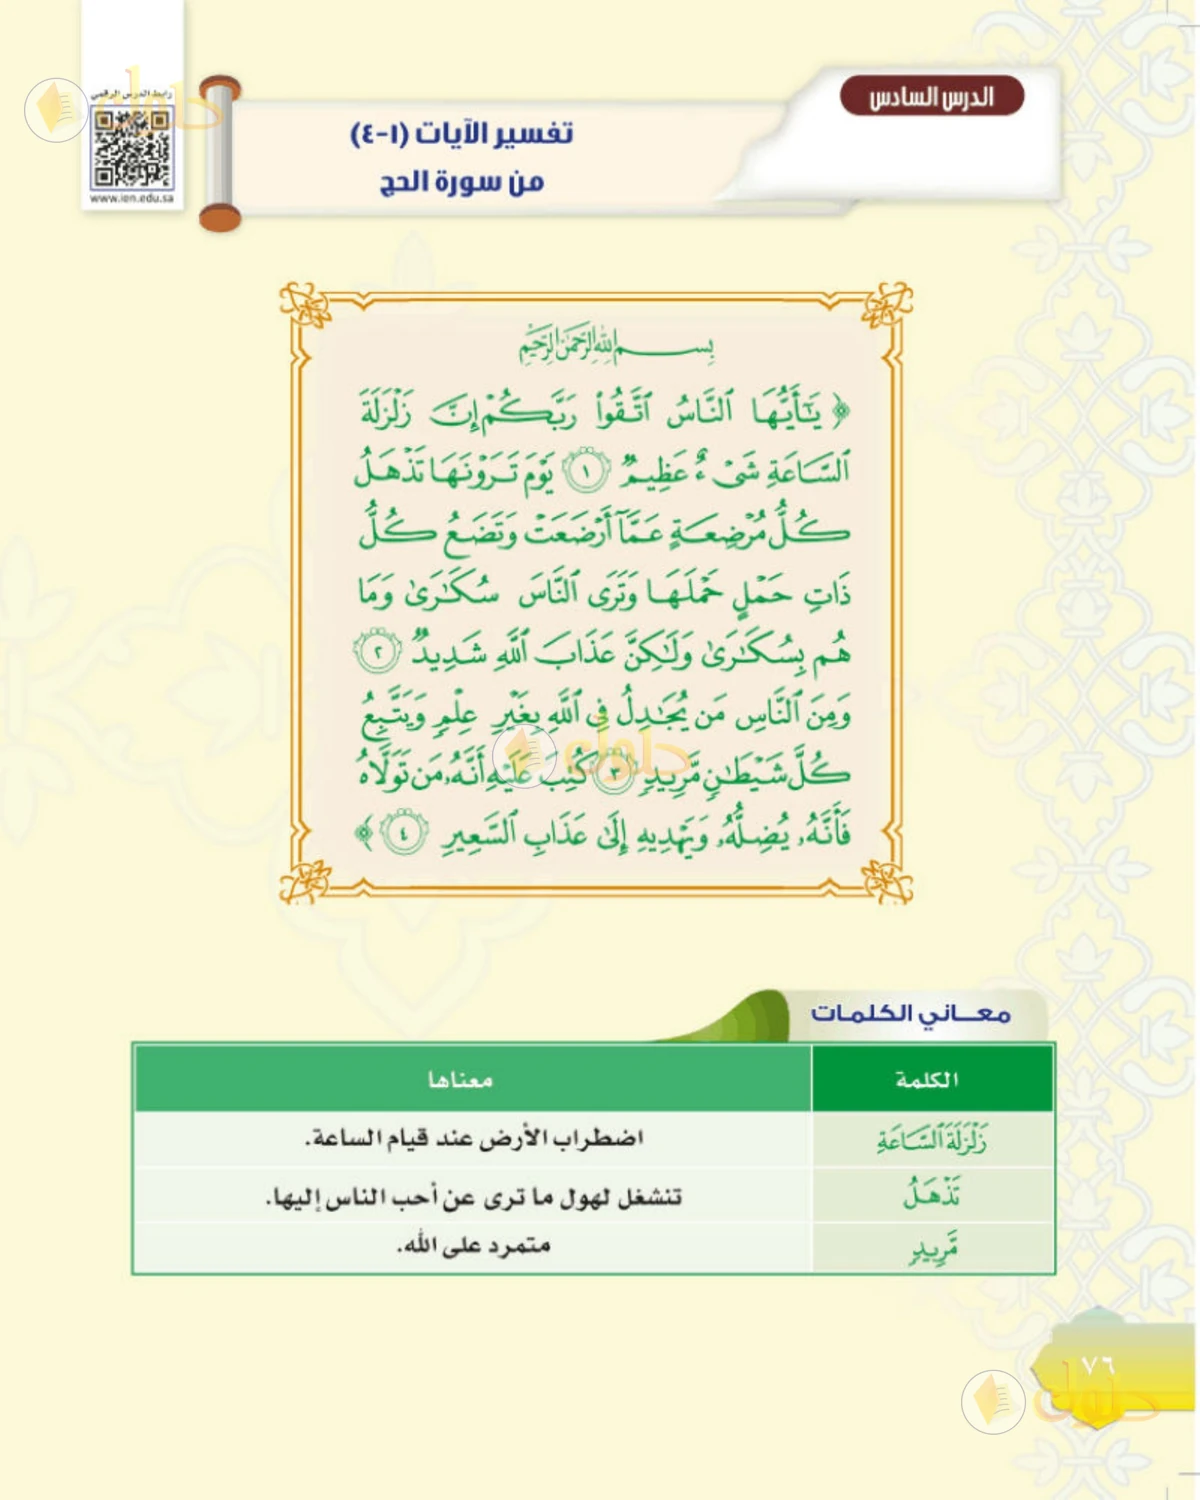 الدرس السادس
رابط الدرس الرقمي
www.ien.edu.sa
تفسير الآيات (١-٤)
من سورة الحج
بِسْمِ اللَّهِ الرَّحْمَٰنِ الرَّحِيمِ
﴿ يَٰٓأَيُّهَا ٱلنَّاسُ ٱتَّقُوا۟ رَبَّكُمْ إِنَّ زَلْزَلَةَ
ٱلسَّاعَةِ شَىْءٌ عَظِيمٌ ١ يَوْمَ تَرَوْنَهَا تَذْهَلُ
كُلُّ مُرْضِعَةٍ عَمَّآ أَرْضَعَتْ وَتَضَعُ كُلُّ
ذَاتِ حَمْلٍ حَمْلَهَا وَتَرَى ٱلنَّاسَ سُكَٰرَىٰ وَمَا
هُم بِسُكَٰرَىٰ وَلَٰكِنَّ عَذَابَ ٱللَّهِ شَدِيدٌ ٢
وَمِنَ ٱلنَّاسِ مَن يُجَٰدِلُ فِى ٱللَّهِ بِغَيْرِ عِلْمٍ وَيَتَّبِعُ
كُلَّ شَيْطَٰنٍ مَّرِيدٍ ٣ كُتِبَ عَلَيْهِ أَنَّهُۥ مَن تَوَلَّاهُ
فَأَنَّهُۥ يُضِلُّهُۥ وَيَهْدِيهِ إِلَىٰ عَذَابِ ٱلسَّعِيرِ ٤ ﴾
حلول
معاني الكلمات
الكلمة معناها
زَلْزَلَةَ ٱلسَّاعَةِ اضطراب الأرض عند قيام الساعة.
تَذْهَلُ تنشغل لهول ما ترى عن أحب الناس إليها.
مَّرِيدٍ متمرد على الله.
٧٦
حلول